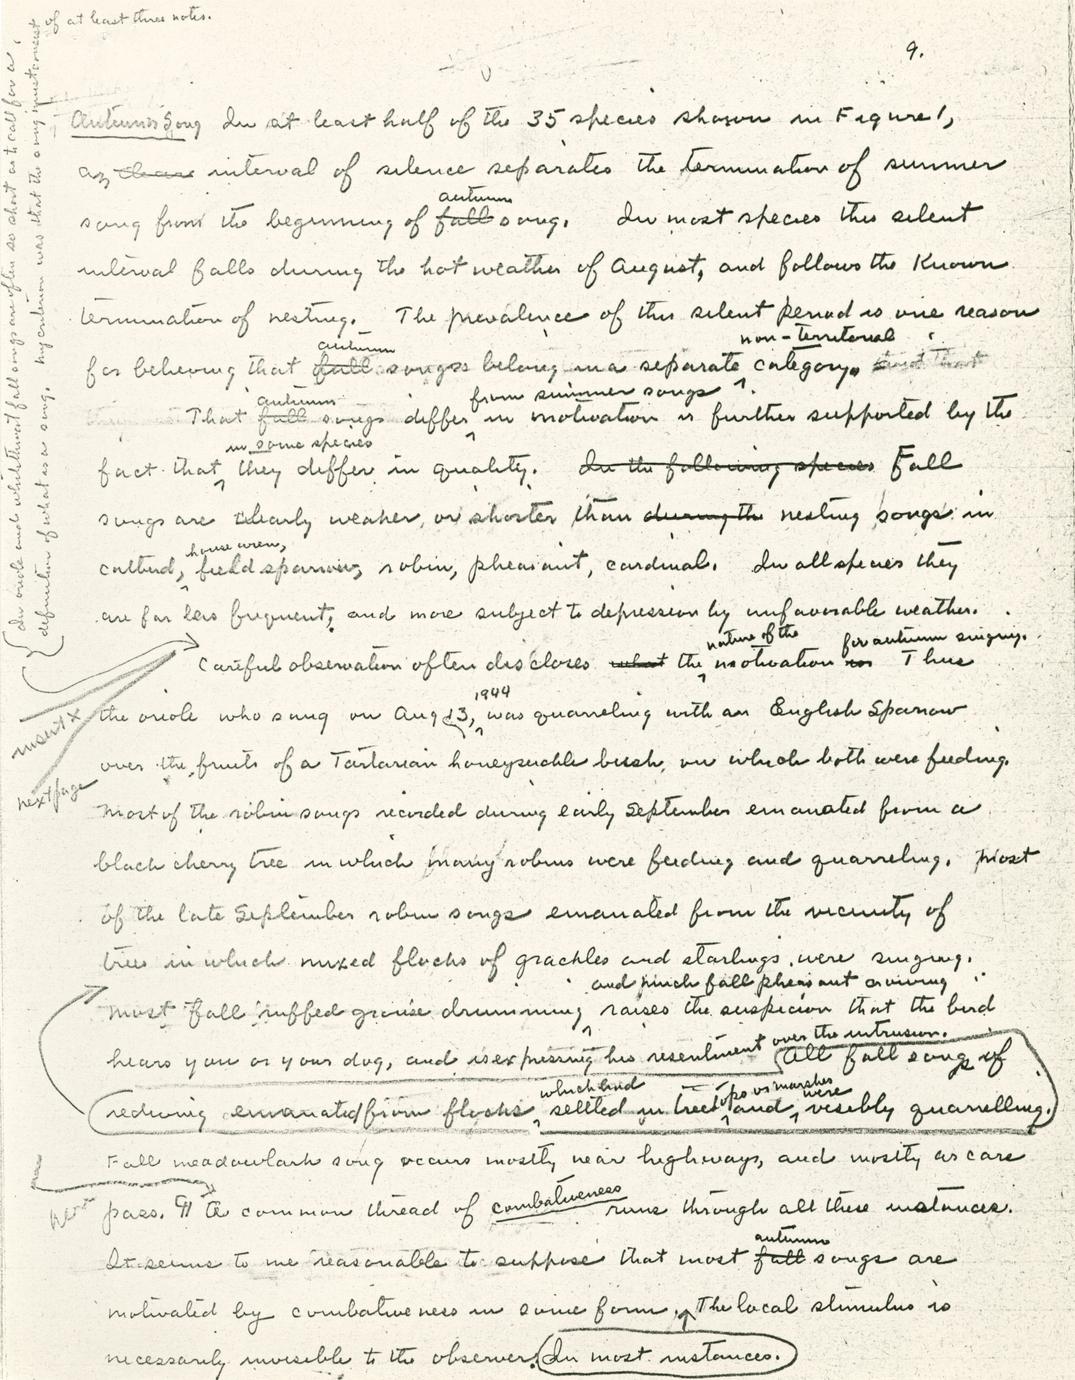 of at least three notes.
9.
Autumn Song In at least half of the 35 species shown in Figure 1,
an interval of silence separates the termination of summer
autumn
song from the beginning of fall song. In most species this silent
interval falls during the hot weather of August, and follows the Known
termination of nesting. The prevalence of this silent period is one reason
autumn non-territorial
for believing that fall songs belong in a separate category.
autumn from summer songs
That fall songs differ in motivation is further supported by the
in some species
fact that they differ in quality. In the following species Fall
songs are clearly weaker, or shorter than during the nesting songs in
house wren,
catbird, field sparrow, robin, pheasant, cardinal. In all species they
are far less frequent, and more subject to depression by unfavorable weather.
nature of the for autumn singing.
Careful observation often discloses what the motivation is Thus
1944
the oriole who sang on Aug 13, was quarreling with an English Sparrow
over the fruits of a Tartarian honeysuckle bush, on which both were feeding.
Most of the robin songs recorded during early September emanated from a
black cherry tree in which many robins were feeding and quarreling. Most
of the late September robin songs emanated from the vicinity of
trees in which mixed flocks of grackles and starlings were singing.
and much fall pheasant crowing
Most fall ruffed grouse drumming raises the suspicion that the bird
over the intrusion.
hears you or your dog, and is expressing his resentment All fall songs of
which had tops or marshes were
redwing emanated from flocks settled in tree and visibly quarrelling.
Fall meadowlark song occurs mostly near highways, and mostly as cars
pass. ¶ The common thread of combativeness runs through all these instances.
autumn
It seems to me reasonable to suppose that most fall songs are
motivated by combativeness in some form. The local stimulus is
necessarily invisible to the observer. In most instances.
In oriole and whitethroat fall songs are often so short as to call for a
definition of what is a song. My criterion was that the song must consist
insert x
next page